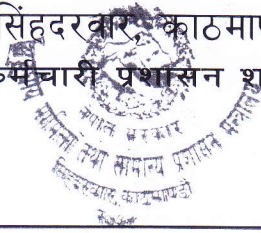 सिंहदरवार, काठमाण
कर्मचारी प्रशासन श
नेपाल सरकार
तथा सामान्य प्रशासन मन्त्रालय
सिंहदरवार, काठमाण्डौ